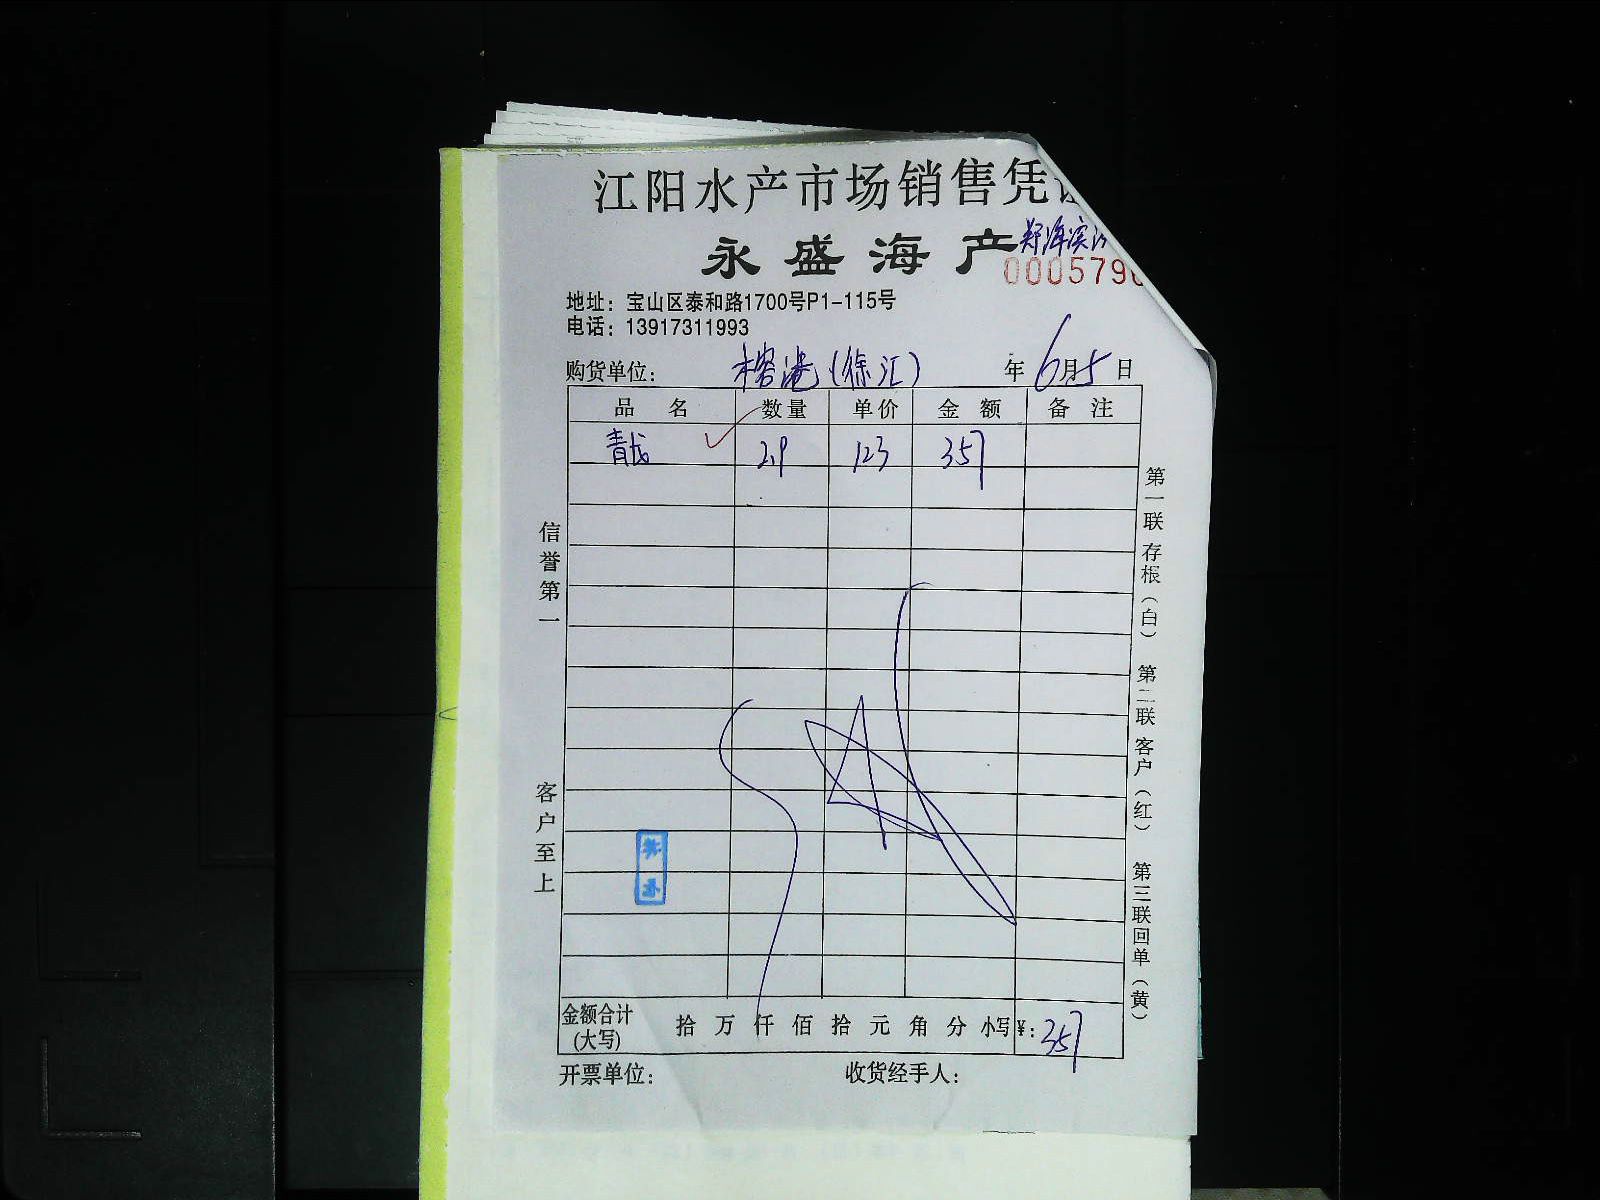 江阳水产市场销售凭
永盛海产
000579
地址：宝山区泰和路1700号P1-115号
电话：13917311993
购货单位： 榕港（徐汇） 年 6月5日
品名 数量 单价 金额 备注
2.9 123 357
信誉第一
客户至上
第一联 存根（白） 第二联 客户（红） 第三联 回单（黄）
金额合计(大写) 拾 万 仟 佰 拾 元 角 分 小写¥：357
开票单位： 收货经手人：